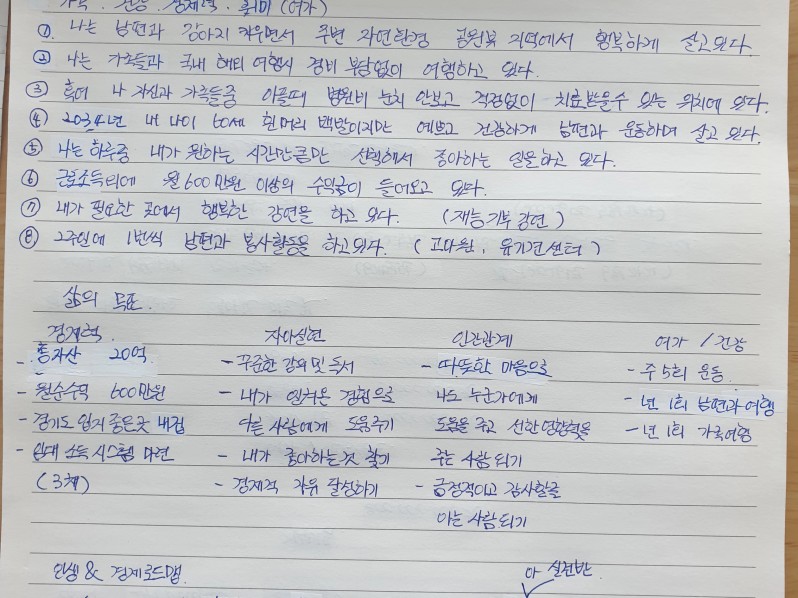 가족 . 건강 . 경제력 . 취미 (여가)
① 나는 남편과 강아지 키우면서 주변 자연환경 공원옆 지역에서 행복하게 살고 있다.
② 나는 가족들과 국내 해외 여행시 경비 부담없이 여행하고 있다.
③ 혹여 나 자신과 가족들중 아플때 병원비 눈치 안보고 걱정없이 치료받을수 있는 위치에 있다.
④ 2034년 내 나이 60세 흰머리 백발이지만 예쁘고 건강하게 남편과 운동하며 살고 있다.
⑤ 나는 하루중 내가 원하는 시간만큼만 선택해서 좋아하는 일을하고 있다.
⑥ 근로소득외에 월 600만원 이상의 수익금이 들어오고 있다.
⑦ 내가 필요한 곳에서 행복한 강연을 하고 있다. (재능기부 강연)
⑧ 2주일에 1번씩 남편과 봉사활동을 하고있다. (고아원, 유기견센터)
삶의 목표.
경제력. 자아실현 인간관계 여가 / 건강
- 총자산 20억. - 꾸준한 강의 및 독서 - 따뜻한 마음으로 - 주 5회 운동.
- 월순수익 600만원 - 내가 경험으로 나도 누군가에게 - 년 1회 남편과 여행
- 경기도 입지 좋은곳 내집 다른 사람에게 도움주기 도움을 주고 선한 영향력을 - 년 1회 가족여행
- 임대 소득 시스템 마련 - 내가 좋아하는것 찾기 주는 사람 되기
(3채) - 경제적 자유 달성하기 - 긍정적이고 감사할줄
아는 사람 되기
인생 & 경제로드맵. 실전반